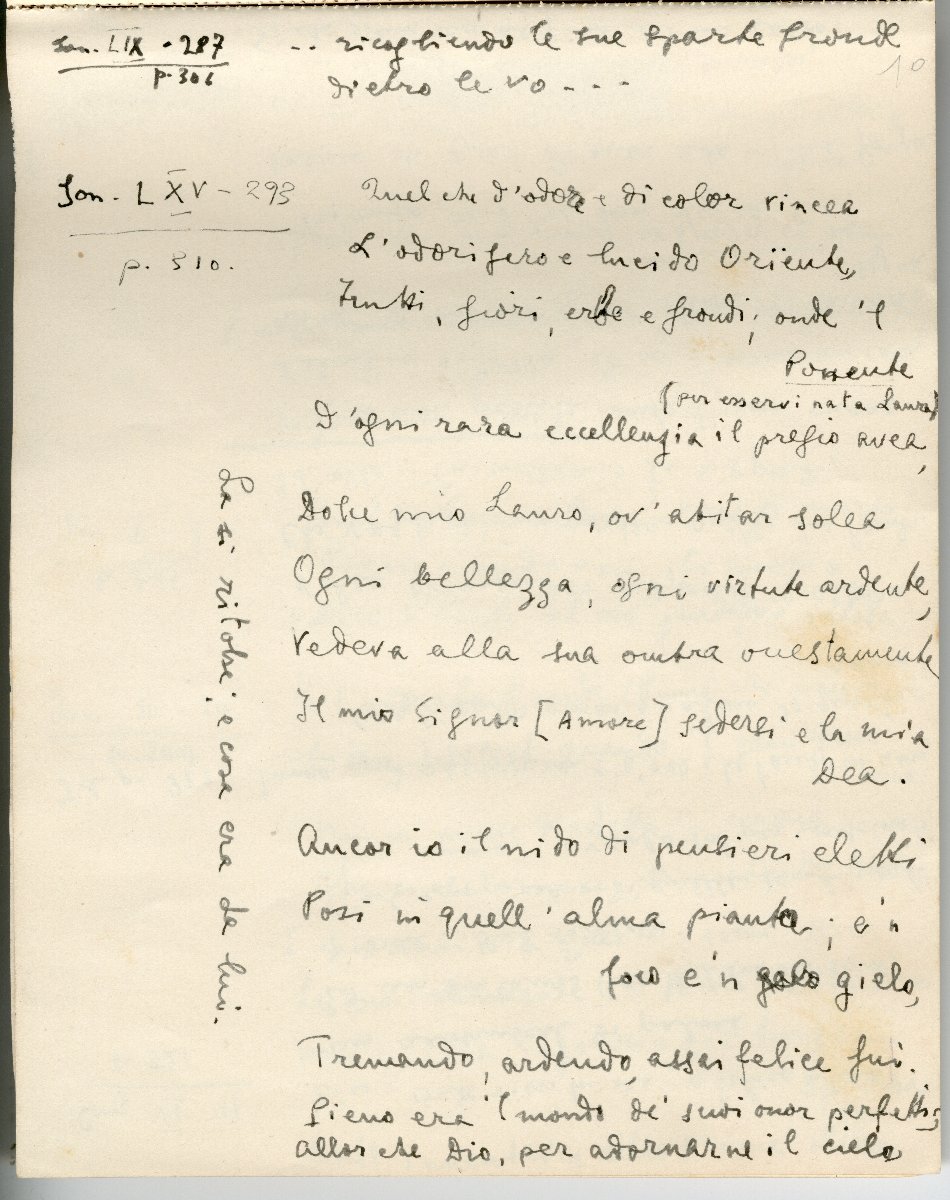 Son. LIX - 287
p. 306
.. ricogliendo le sue sparte fronde
dietro le vo - - -
10
Son. LXV - 293
p. 310.
Quel che d'odore e di color vincea
L'odorifero e lucido Orïente,
Frutti, fiori, erbe e frondi; onde 'l
Ponente
(per esservi nata Laura)
D'ogni rara eccellenzia il pregio avea,
Dolce mio Lauro, ov'abitar solea
Ogni bellezza, ogni virtute ardente,
Vedeva alla sua ombra onestamente
Il mio Signor [Amore] sedersi e la mia
Dea.
Ancor io il nido di pensieri eletti
Posi in quell'alma pianta; e 'n
foco e 'n gielo,
Tremando, ardendo, assai felice fui.
Pieno era 'l mondo de' suoi onor perfetti;
allor che Dio, per adornarne il cielo
La si ritolse; e cosa era da lui.